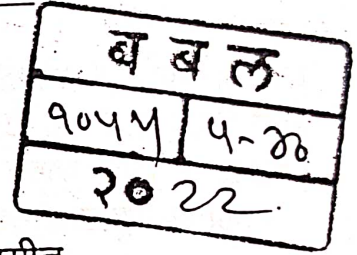 ब ब ल
१०५५ ५-३०
२०२२